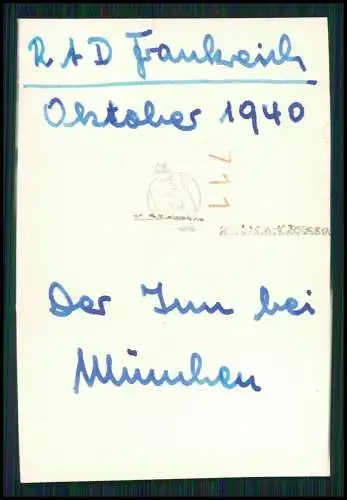 RAD Frankreich
Oktober 1940
111
Der Inn bei
München